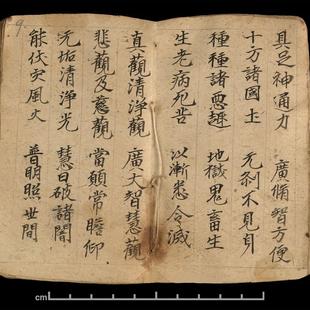 具足神通力 廣俻智方便
十方諸國土 无剎不見身
種種諸惡趣 地獄鬼畜生
生老病死苦 以漸悉令滅
真觀清淨觀 廣大智慧觀
悲觀及慈觀 當願常瞻仰
无垢清淨光 慧日破諸闇
能伏災風火 普明照世間
9.
cm